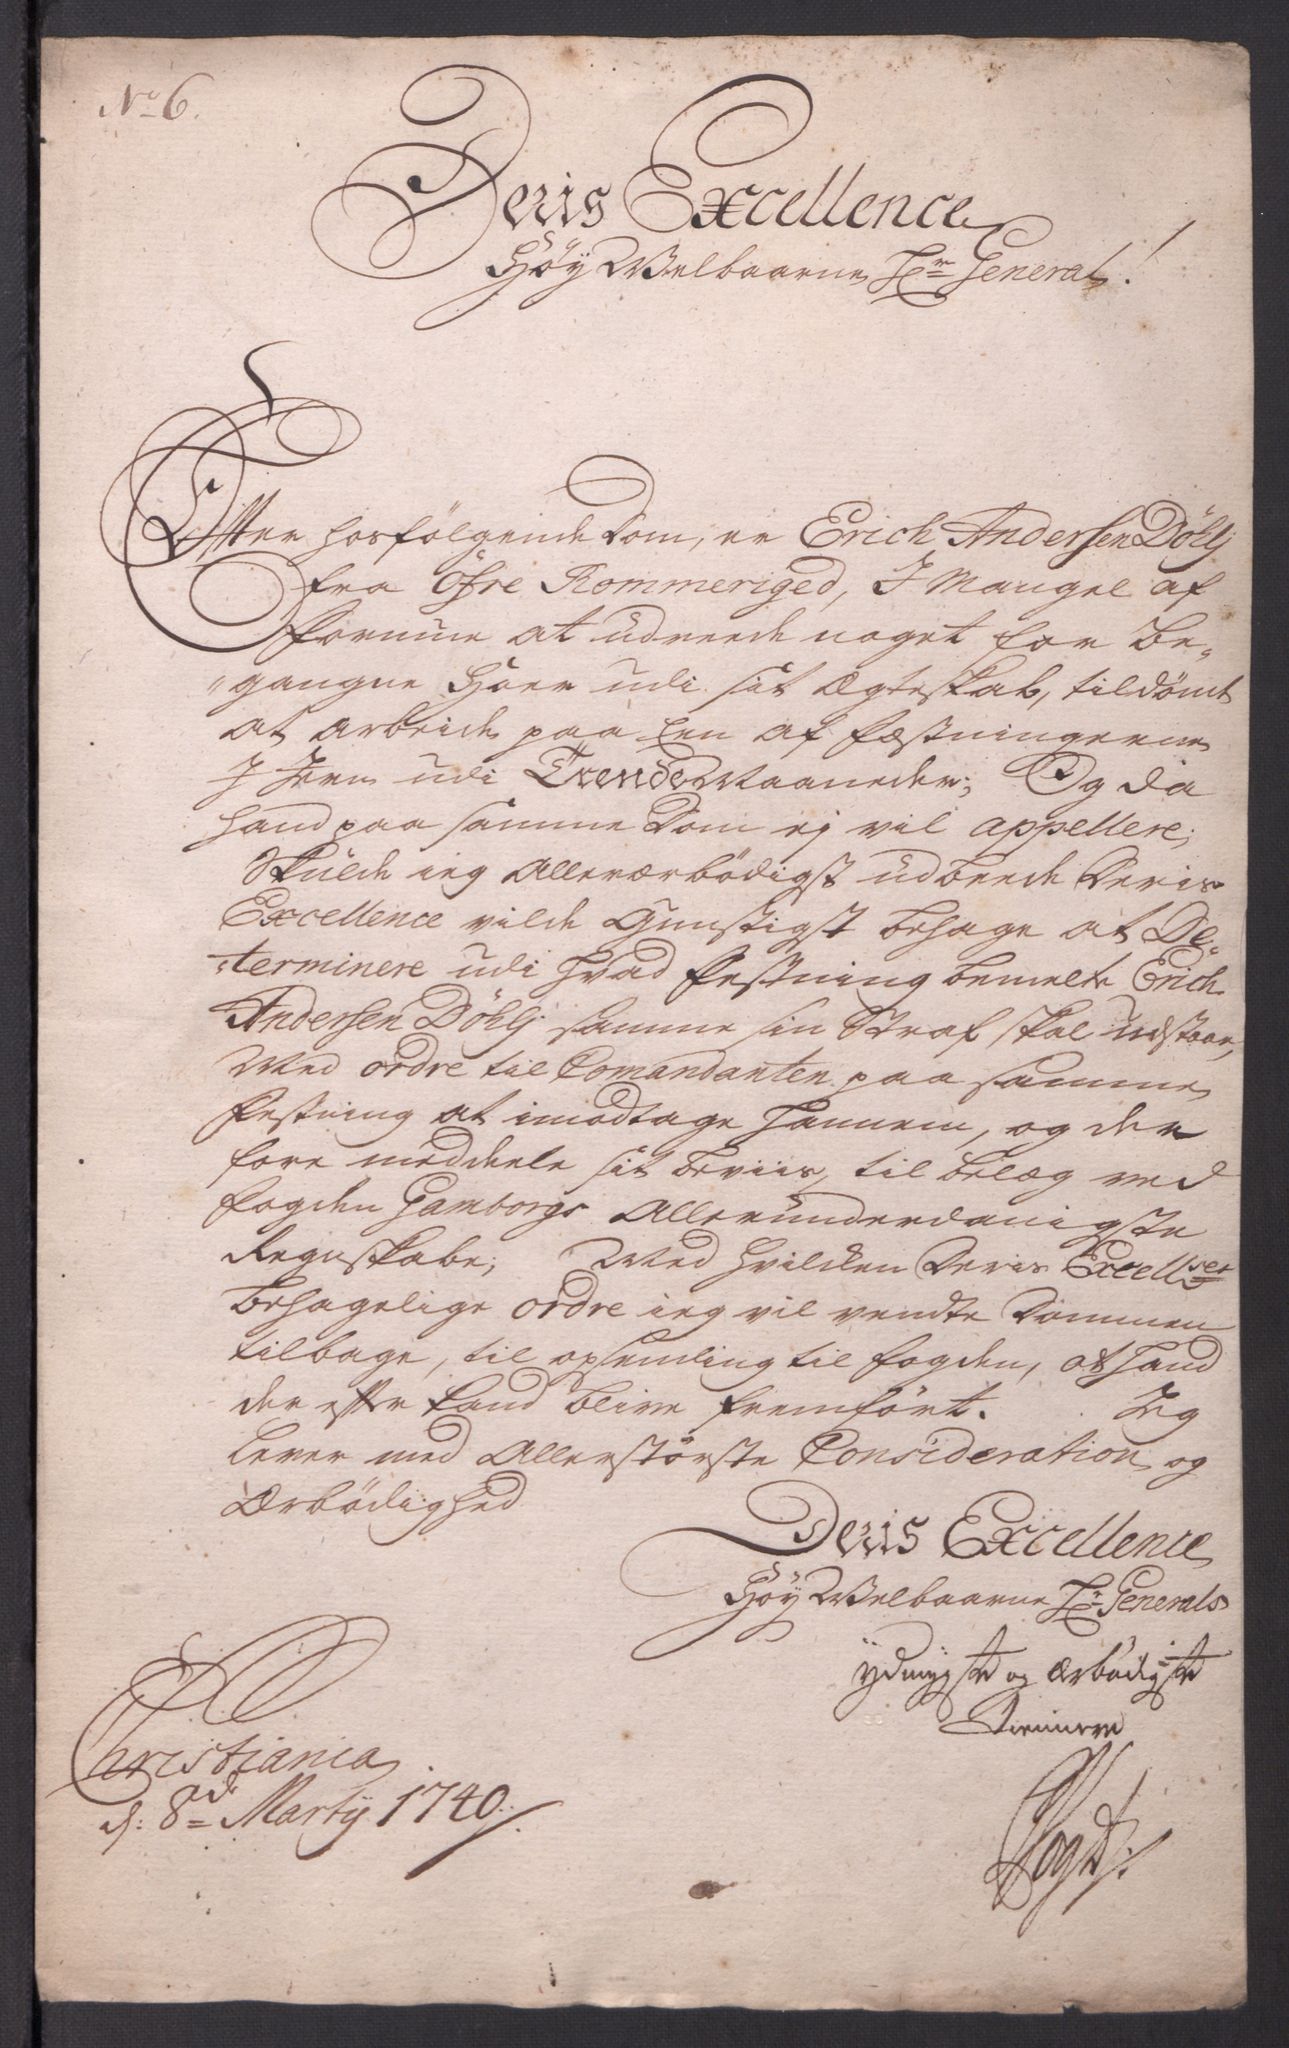 No 6.
Deris Excellence
Höy Welbaarne Hr General!
Efter hosfölgende Dom, er Erich Andersen Döhlj
fra Öfre Rommeriged, I Mangel af
formue at udreede noget for be„
„gangne Hoer udi sit Ægteskab, tildömt
at arbeide paa een af fæstningerne
I Jern udi Trende Maaneder; Og da
hand paa samme Dom ej vil appellere;
Skulde ieg Allerærbödigst udbeede Deris
Excellence vilde Gunstigst behage at De„
„terminere udi hvad festning bemelte Erich
Andersen Döhlj samme sin Straf skal udstaae,
Med ordre til Comandanten paa samme
festning at imodtage hannem, og der
fore meddeele sit beviis, til belæg ved
fogden Gamborgs Allerunderdanigste
Regnskabe; Med hvilken Deris Excellces
behagelige ordre ieg vil vendte Dommen
tilbage, til opsending til fogden, at hand
der efter kand blive fremfört. Jeg
lever med Allerstörste Consideration og
Ærbödighed
Deris Excellence
Höy Welbaarne Hr Generals
ÿdmygste og ærbödigste
Tiennere
Vogt.
Christiania
d: 8de Martij 1740.